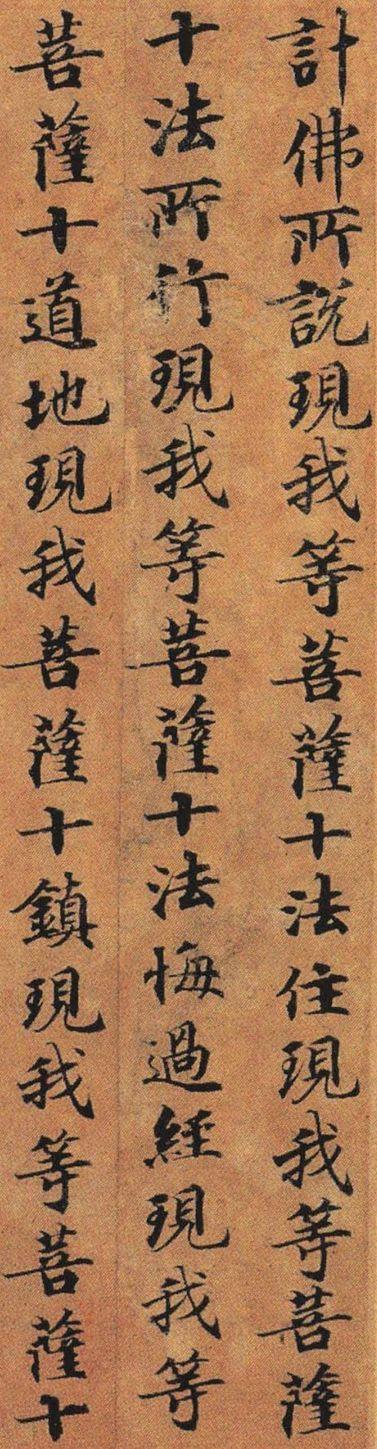 計佛所説現我等菩薩十法住現我等菩薩
十法所行現我等菩薩十法悔過經現我等
菩薩十道地現我菩薩十鎮現我等菩薩十